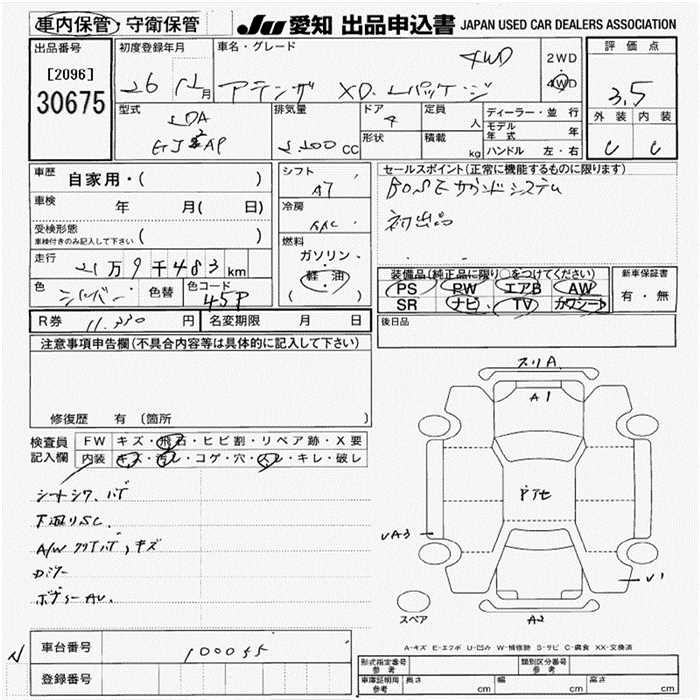 車内保管・守衛保管
JU 愛知 出品申込書 JAPAN USED CAR DEALERS ASSOCIATION
出品番号
[2096]
30675
初度登録年月
26 12月
車名・グレード
4WD
アテンザ XD. Lパッケージ
2WD
4WD
評価点
3.5
外装 内装
C C
型式
LDA
GJ2AP
排気量
2,200 CC
ドア
4
形状
定員
人
積載
kg
ディーラー・並行
モデル年式 年
ハンドル 左・右
車歴 自家用・( )
車検 年 月( 日)
受検形態
車検付きのみ記入して下さい ( )
走行 21万9千483 km
色 シルバー 色替 色コード 45P
シフト
A7
冷房
AAC
燃料
ガソリン
・
軽油
( ・ )
セールスポイント(正常に機能するものに限ります)
BOSEサウンドシステム
初出品
装備品(純正品に限り○をつけてください)
PS PW エアB AW
SR ナビ TV カワシート
新車保証書
有・無
R券 11,330 円 名変期限 月 日
後日品
注意事項申告欄(不具合内容等は具体的に記入して下さい)
修復歴 有 (箇所 )
検査員
記入欄
FW キズ・飛石・ヒビ割・リペア跡・X要
内装 キズ・汚レ・コゲ・穴・スレ・キレ・破レ
シートシワ、
下廻りSC.
キズ
ボディーAU.
スリA
A1
UA3
U1
A2
スペア
A-キズ E-エクボ U-凹み W-補修跡 S-サビ C-腐食 XX-交換済
車台番号 100055
登録番号
形式指定番号
参考
類別区分番号
参考
車庫証明用
参考
長さ cm 幅 cm 高さ cm